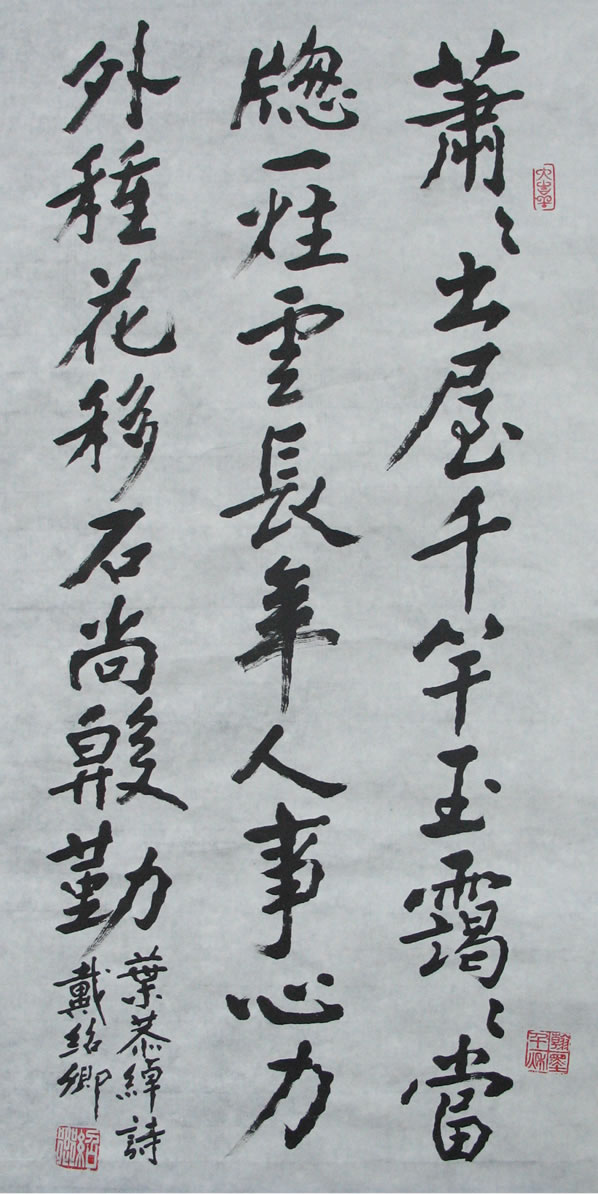 蕭〻出屋千竿玉靄〻當
牕一炷雲長年人事心力
外種花移石尚殷勤
葉恭綽詩
戴紹卿